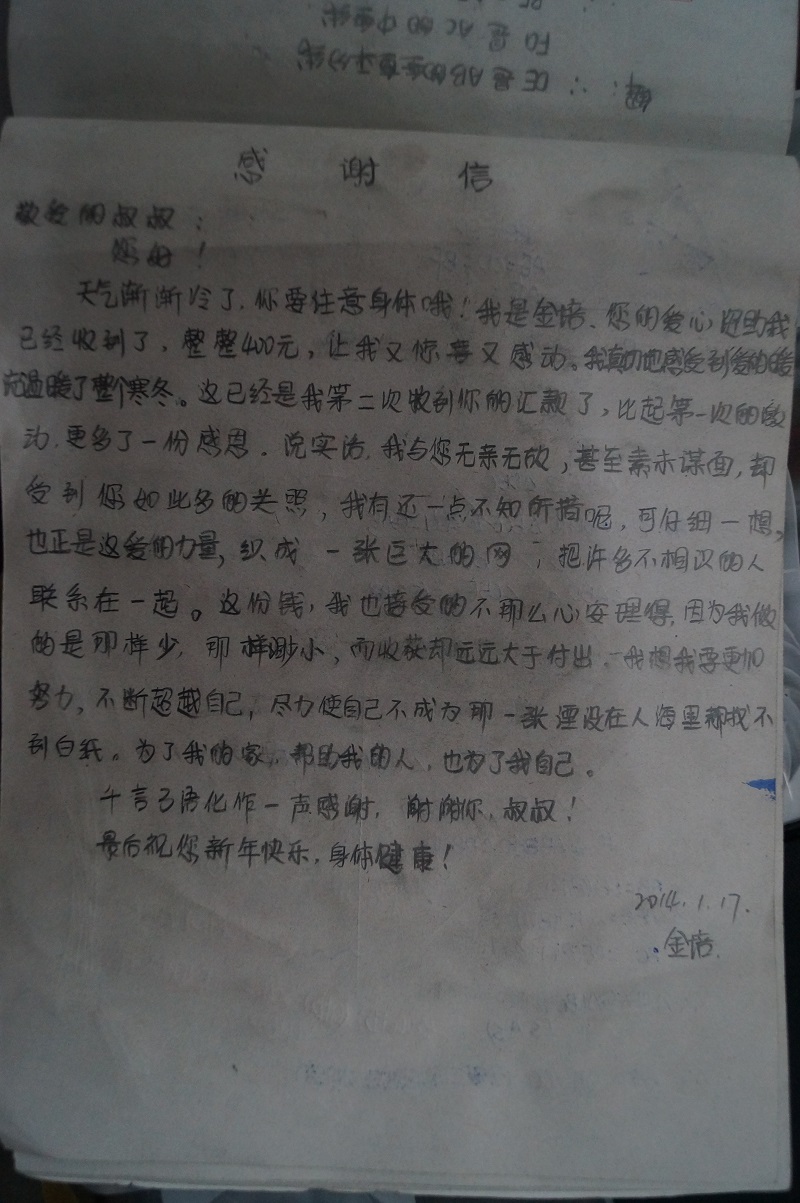 解：∴ DE是AB的垂直平分线
FD是AC的中垂线
感 谢 信
敬爱的叔叔：
您好！
天气渐渐冷了，你要注意身体哦！我是金培、您的爱心资助我
已经收到了，整整400元，让我又惊喜又感动。我真切地感受到爱的暖
流温暖了整个寒冬。这已经是我第二次收到你的汇款了，比起第一次的激
动，更多了一份感恩．说实话，我与您无亲无故，甚至素未谋面，却
受到您如此多的关照，我有还一点不知所措呢，可仔细一想，
也正是这爱的力量，织成一张巨大的网，把许多不相识的人
联系在一起。这份钱，我也接受的不那么心安理得，因为我做
的是那样少，那样渺小，而收获却远远大于付出．我想我要更加
努力，不断超越自己，尽力使自己不成为那一张湮没在人海里都找不
到白纸。为了我的家，帮助我的人，也为了我自己。
千言万语化作一声感谢，谢谢你，叔叔！
最后祝您新年快乐，身体健康！
2014.1.17.
金培